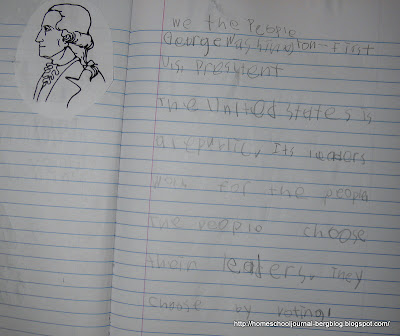 We the People
George Washington - First
U.S. President
The United States is
a republic. Its leaders
work for the people
The people choose
their leaders. They
choose by voting!
http://homeschooljournal-bergblog.blogspot.com/